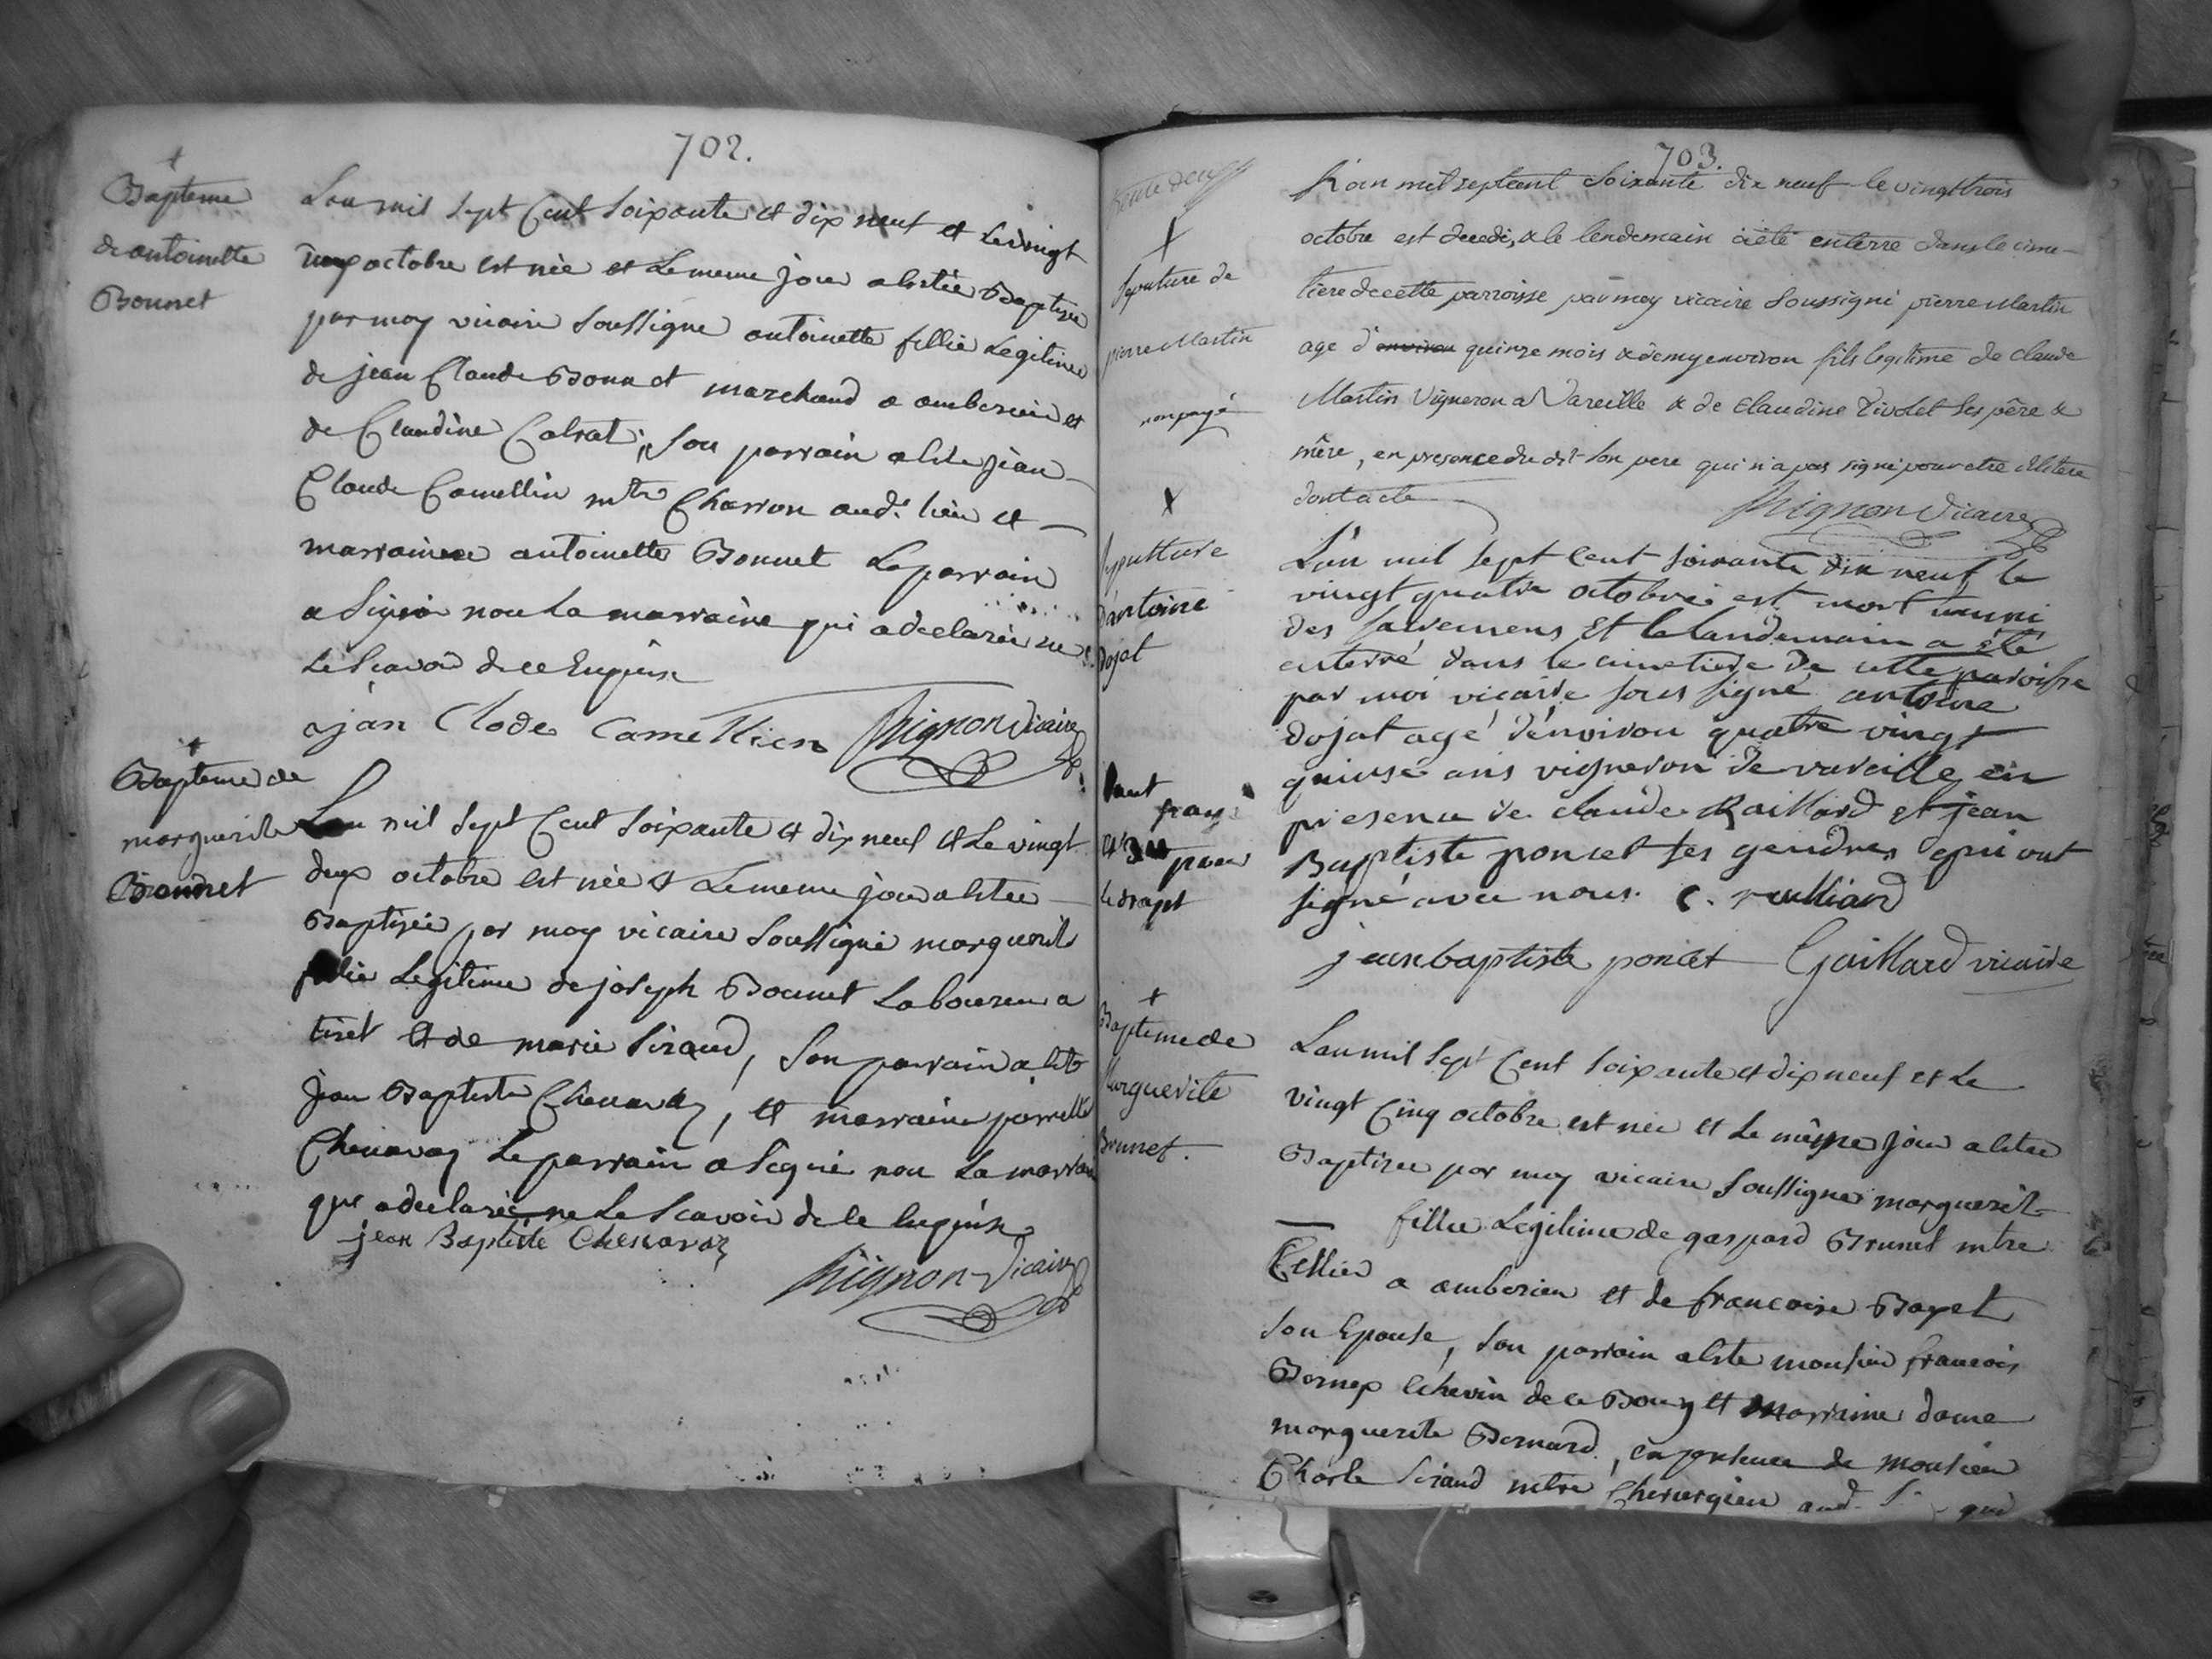 702.
Bapteme
de antoinette
Bonnet
Lan mil sept Cent soixante et dix neuf et le vingt
octobre est née et le meme jour a estée Baptisée
par moy vicaire soussigne antoinette fillie Legitime
de jean Claude Bonnet marchand a amberieu et
de Claudine Calrat; son parrain a este jean
Claude Camellin mtre Charron aud. lieu et
marraine antoinette Bonnet Le parrain
a Signé non La marraine qui a declarée ne
Le Scavoir de ce Enquise
jan Clode Camellien Mignon Vicaire
Bapteme de
marguerite
Bonnet
Lan mil sept Cent soixante et dix neuf et Le vingt
deux octobre est née et Le meme jour a estee
Baptisée par moy vicaire soussigné marguerite
fillie Legitime de joseph Bonnet Laboureur a
tiret et de marie Siraud, son parrain a este
jean Baptiste Chenavaz, et marraine perrette
Chenavaz Le parrain a signé non La marraine
qui a declarée ne Le Scavoir de ce enquise
jean Baptiste Chenavaz
Mignon Vicaire
703.
X
Sepulture de
pierre Martin
non payé
X
L'an mil sept cent soixante dix neuf le vingt trois
octobre est decedé, & le lendemain a été enterre dans le cime-
tiere de cette parroisse par moy vicaire soussigné pierre Martin
age d'environ quinze mois & demy environ fils legitime de claude
Martin Vigneron a Vareille & de claudine Tivolet ses père &
mère, en presence du dit son pere qui n'a pas signé pour etre illitere
dont acte Mignon Vicaire
sepulture
d'antoine
dojat
L'an mil sept cent soixante dix neuf le
vingt quatre octobre est mort muni
des sacremens et le landemain a été
enterré dans le cimetiere de cette paroisse
par moi vicaire sous signé antoine
dojat agé d'environ quatre vingt
quinse ans vigneron de vareille en
presence de claude Raillard et jean
Baptiste poncet ses gendres qui ont
signé avec nous. c. raillard
jean baptiste poncet Gaillard vicaire
Bapteme de
Marguerite
Brunet.
Lan mil Sept Cent soixante et dix neuf et Le
vingt Cinq octobre est née et Le même jour a estee
Baptisee par moy vicaire soussigné marguerite
fillie Legitime de gaspard Brunet mtre
Tellier a amberieu et de francoise Bayet
son Epouse, son parrain a este monsieur francois
Bernex Echevin de ce Bourg et Marraine dame
marguerite Bernard, en presence de monsieur
Charle Siraud mtre Cherurgien aud. qui